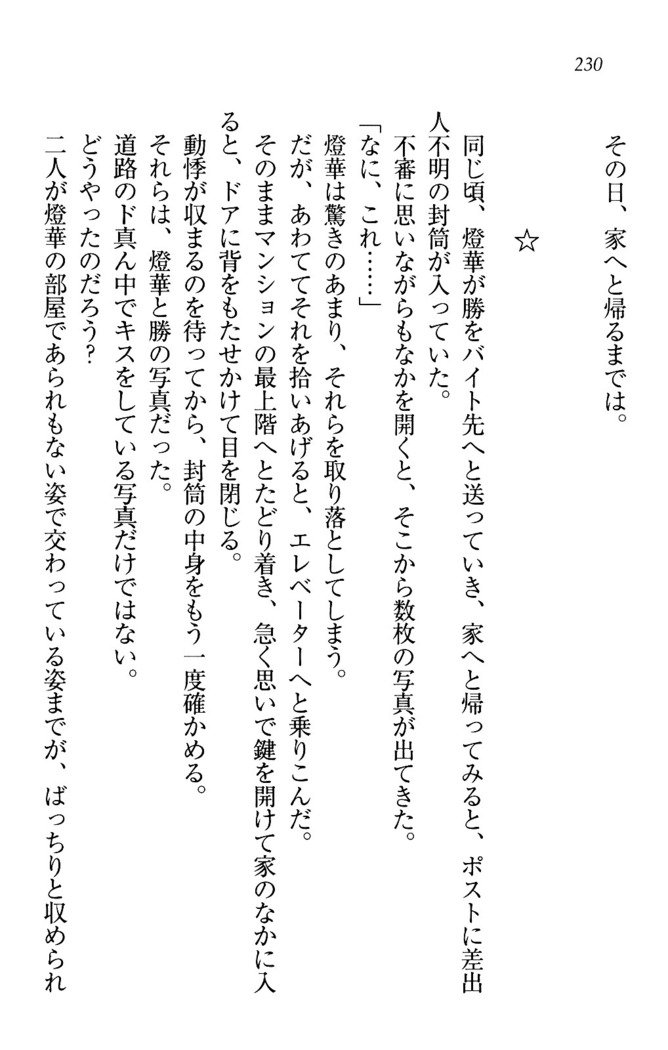 230
その日、家へと帰るまでは。
☆
同じ頃、燈華が勝をバイト先へと送っていき、家へと帰ってみると、ポストに差出
人不明の封筒が入っていた。
不審に思いながらもなかを開くと、そこから数枚の写真が出てきた。
「なに、これ……」
燈華は驚きのあまり、それらを取り落としてしまう。
だが、あわててそれを拾いあげると、エレベーターへと乗りこんだ。
そのままマンションの最上階へとたどり着き、急く思いで鍵を開けて家のなかに入
ると、ドアに背をもたせかけて目を閉じる。
動悸が収まるのを待ってから、封筒の中身をもう一度確かめる。
それらは、燈華と勝の写真だった。
道路のド真ん中でキスをしている写真だけではない。
どうやったのだろう?
二人が燈華の部屋であられもない姿で交わっている姿までが、ばっちりと収められ